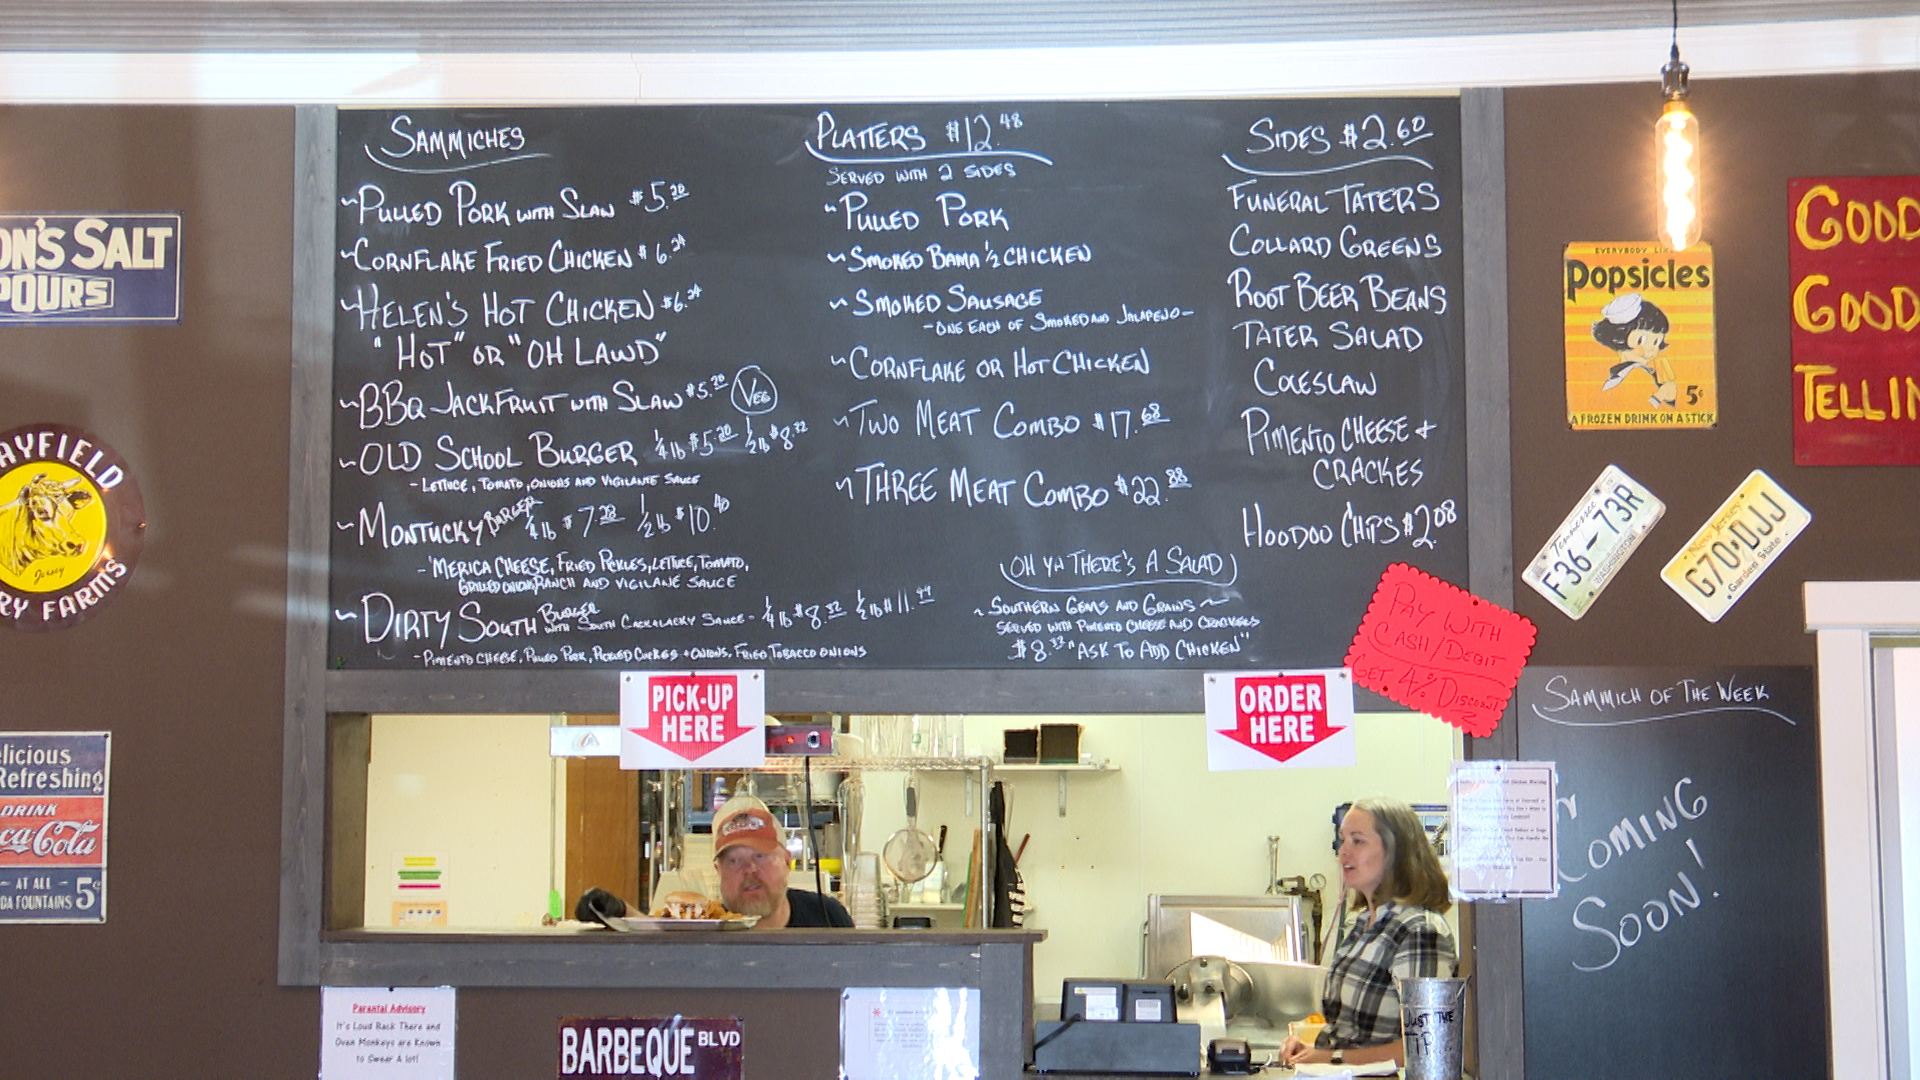 SAMMICHES
~PULLED PORK WITH SLAW $5.20
~CORNFLAKE FRIED CHICKEN $6.24
~HELEN'S HOT CHICKEN $6.24
"HOT" OR "OH LAWD"
~BBQ JACKFRUIT WITH SLAW $5.20 VEG
~OLD SCHOOL BURGER 1/4 lb $5.20 1/2 lb $8.32
- LETTUCE, TOMATO, ONIONS AND VIGILANTE SAUCE
~MONTUCKY BURGER 1/4 lb $7.28 1/2 lb $10.40
- 'MERICA CHEESE, FRIED PICKLES, LETTUCE, TOMATO,
GRILLED ONION, RANCH AND VIGILANE SAUCE
~DIRTY SOUTH BURGER WITH SOUTH CACKALACKY SAUCE - 1/4 lb $8.32 1/2 lb $11.44
- PIMENTO CHEESE, PULLED PORK, PICKLED CUKES + ONIONS, FRIED TOBACCO ONIONS
PLATTERS $12.48
SERVED WITH 2 SIDES
~PULLED PORK
~SMOKED BAMA 1/2 CHICKEN
~SMOKED SAUSAGE
- ONE EACH OF SMOKED AND JALAPENO -
~CORNFLAKE OR HOT CHICKEN
~TWO MEAT COMBO $17.68
~THREE MEAT COMBO $22.88
OH YA THERE'S A SALAD
~ SOUTHERN GEMS AND GRAINS ~
SERVED WITH PIMENTO CHEESE AND CRACKERS
$8.33 "ASK TO ADD CHICKEN"
SIDES $2.60
FUNERAL TATERS
COLLARD GREENS
ROOT BEER BEANS
TATER SALAD
COLESLAW
PIMENTO CHEESE +
CRACKES
HOODOO CHIPS $2.08
PAY WITH
CASH/DEBIT
GET 4% DISCOUNT
ON'S SALT
POURS
AYFIELD
Jersey
RY FARMS
elicious
Refreshing
DRINK
ca-Cola
- AT ALL -
DA FOUNTAINS 5¢
EVERYBODY LIK
Popsicles
5¢
A FROZEN DRINK ON A STICK
GOOD
GOOD
TELLIN
Tennessee
F36-73R
WASHINGTON
New Jersey
G70·DJJ
Garden State
PICK-UP
HERE
ORDER
HERE
SAMMICH OF THE WEEK
COMING
SOON!
Parental Advisory
It's Loud Back There and
Oven Monkeys are Known
to Swear A lot!
BARBEQUE BLVD
JUST THE
TIP...